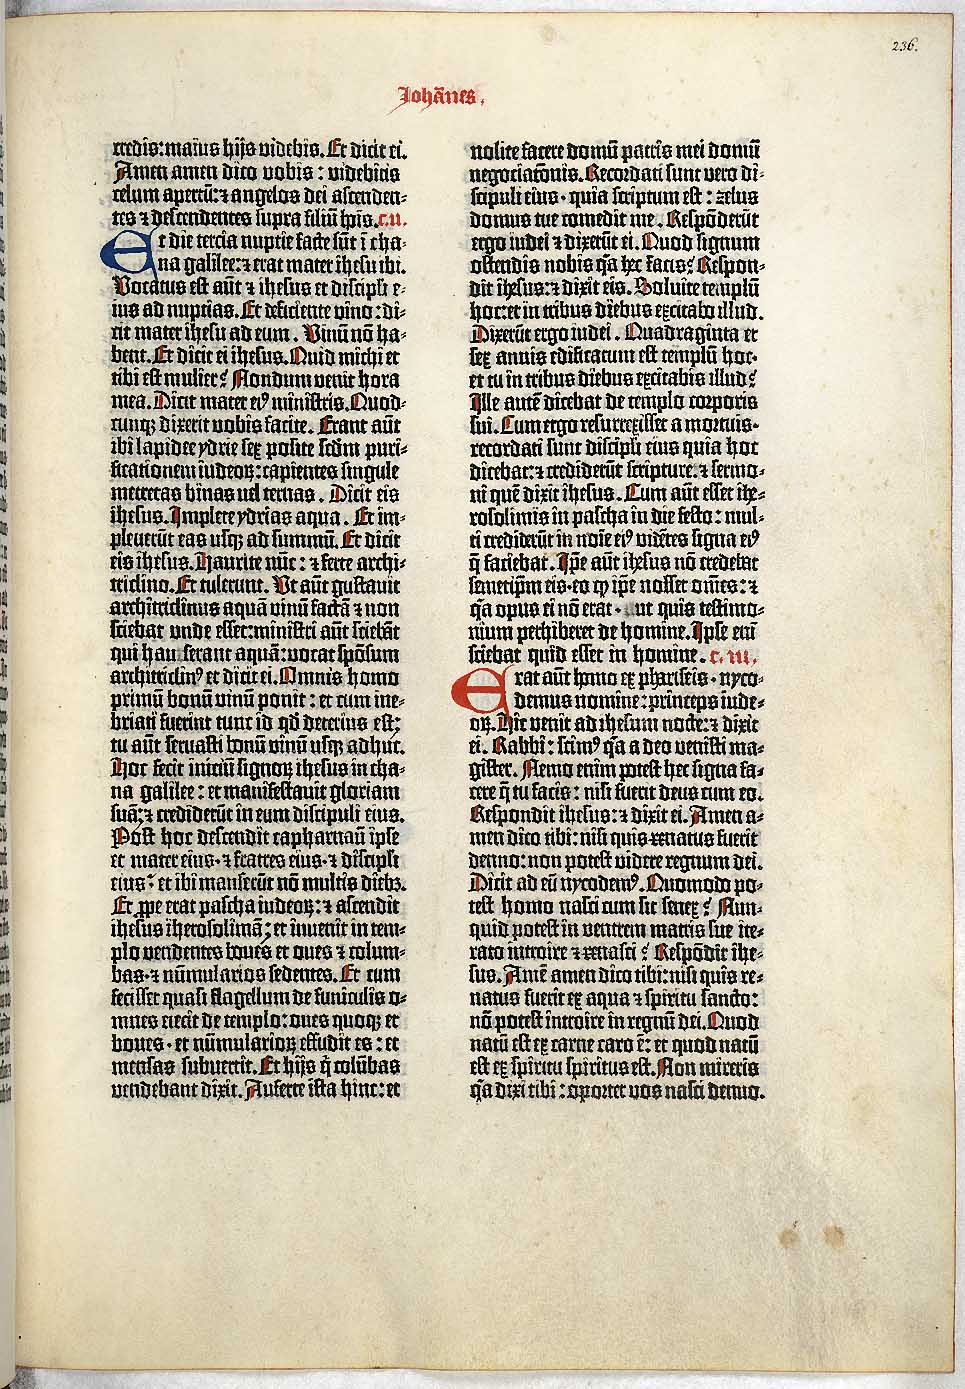 236.
Johānes.
credis: maius hijs videbis. Et dicit ei.
Amen amen dico vobis: videbitis
celum apertū: ⁊ angelos dei ascenden-
tes ⁊ descendentes supra filiū hoīs. c. II.
Et die tercia nuptie facte sūt ī cha-
na galilee: ⁊ erat mater ihesu ibi.
Vocatus est aūt ⁊ ihesus et discipli e-
ius ad nuptias. Et deficiente vino: di-
cit mater ihesu ad eum. Vinū nō ha-
bent. Et dicit ei ihesus. Quid michi et
tibi est mulier? Nondum venit hora
mea. Dicit mater eiꝰ ministris. Quod-
cunqꝫ dixerit vobis facite. Erant aūt
ibi lapidee ydrie sex posite scdm puri-
ficationem iudeoꝝ: capientes singule
metretas binas vel ternas. Dicit eis
ihesus. Implete ydrias aqua. Et im-
pleuerūt eas usqꝫ ad summū. Et dicit
eis ihesus. Haurite nūc: ⁊ ferte archi-
triclino. Et tulerunt. Vt aūt gustauit
architriclinus aquā vinū factā ⁊ non
sciebat vnde esset: ministri aūt sciebāt
qui hau serant aquā: vocat spōsum
architriclinꝰ et dicit ei. Omnis homo
primū bonū vinū ponit: et cum ine-
briati fuerint tunc id qđ deterius est:
tu aūt seruasti bonū vinū usqꝫ adhuc.
Hoc fecit iniciū signoꝝ ihesus in cha-
na galilee: et manifestauit gloriam
suā: ⁊ crediderūt in eum discipuli eius.
Post hoc descendit capharnaū ipse
et mater eius · ⁊ fratres eius · ⁊ discipli
eius: et ibi manserūt nō multis diebꝫ.
Et ꝓpe erat pascha iudeoꝝ: ⁊ ascendit
ihesus iherosolimā: et inuenit in tem-
plo vendentes boues et oues ⁊ colum-
bas · ⁊ nūmularios sedentes. Et cum
fecisset quasi flagellum de funiculis o-
mnes eiecit de templo: oues quoqꝫ et
boues · et nūmularioꝝ effudit es: et
mensas subuertit. Et hijs q̄ colūbas
vendebant dixit. Auferte ista hinc: et
nolite facere domū patris mei domū
negociatōnis. Recordati sunt vero di-
scipuli eius · quia scriptum est: zelus
domus tue comedit me. Respōderūt
ergo iudei ⁊ dixerūt ei. Quod signum
ostendis nobis qā hec facis? Respon-
dit ihesus: ⁊ dixit eis. Soluite templū
hoc: et in tribus diebus excitabo illud.
Dixerūt ergo iudei. Quadraginta et
sex annis edificatum est templū hoc ·
et tu in tribus diebus excitabis illud?
Ille autē dicebat de templo corporis
sui. Cum ergo resurrexisset a mortuis ·
recordati sunt discipli eius quia hoc
dicebat: ⁊ crediderūt scripture: ⁊ sermo-
ni quē dixit ihesus. Cum aūt esset ihe-
rosolimis in pascha in die festo: mul-
ti crediderūt in noīe eiꝰ videtes signa eiꝰ
q̄ faciebat. Ipe aūt ihesus nō credebat
semetipm eis · eo ꝙ ipe nosset om̄es: ⁊
qā opus ei nō erat · ut quis testimo-
nium perhiberet de homine. Ipse eni
sciebat quid esset in homine. c. III.
Erat aūt homo ex phariseis · nyco-
demus nomine: princeps iude-
oꝝ. Hic venit ad ihesum nocte: ⁊ dixit
ei. Rabbi: scimꝰ qā a deo venisti ma-
gister. Nemo enim potest hec signa fa-
cere q̄ tu facis: nisi fuerit deus cum eo.
Respondit ihesus: ⁊ dixit ei. Amen a-
men dico tibi: nisi quis renatus fuerit
denuo: non potest videre regnum dei.
Dicit ad eū nycodemꝰ. Quomodo po-
test homo nasci cum sit senex? Nun-
quid potest in ventrem matris sue ite-
rato introire ⁊ renasci? Respōdit ihe-
sus. Amē amen dico tibi: nisi quis re-
natus fuerit ex aqua ⁊ spiritu sancto:
nō potest introire in regnū dei. Quod
natū est ex carne caro ē: et quod natū
est ex spiritu spiritus est. Non mireris
qā dixi tibi: oportet vos nasci denuo.